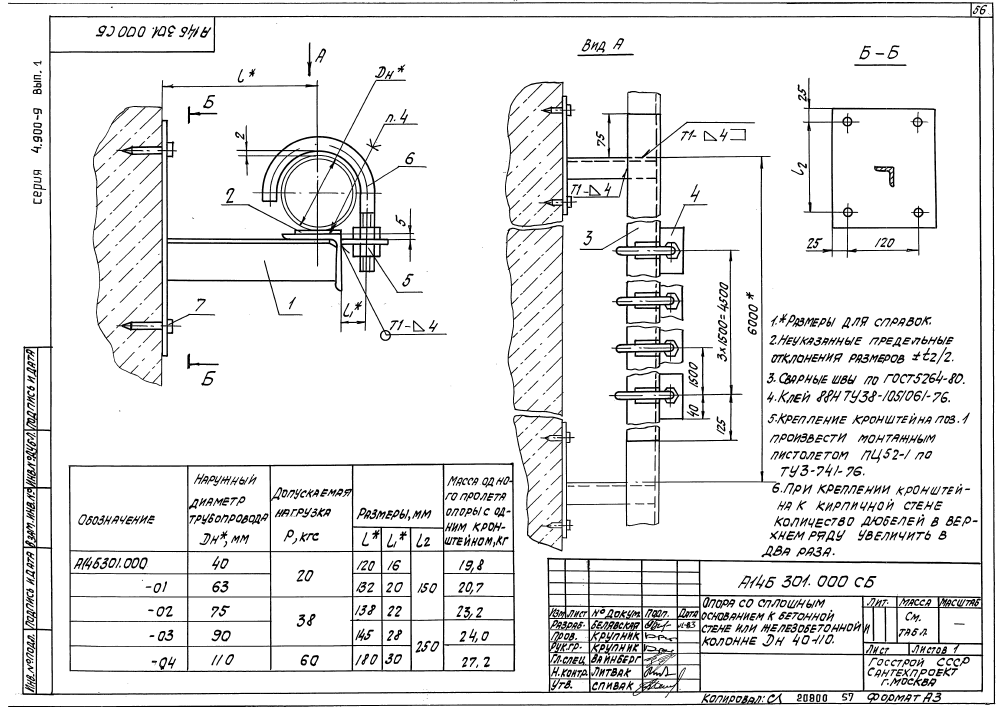 56
А14Б 301.000 СБ
серия 4.900-9 вып. 1
А
l*
Dн*
Б
п.4
2
6
2
5
1
5
l₁*
Т1-⊿4
7
Б
Вид А
75
Т1-⊿4
Т1-⊿4
4
3
3×1500=4500
6000*
1500
40
125
Б-Б
25
l2
25
120
1.*Размеры для справок.
2.Неуказанные предельные
отклонения размеров ±t2/2.
3.Сварные швы по ГОСТ5264-80.
4.Клей 88Н ТУ38-1051061-76.
5.Крепление кронштейна поз.1
произвести монтажным
пистолетом ПЦ52-1 по
ТУ3-741-76.
6.При креплении кронштей-
на к кирпичной стене
количество дюбелей в вер-
хнем ряду увеличить в
два раза.
Обозначение
Наружный диаметр трубопровода Dн*, мм
Допускаемая нагрузка Р, кгс
Размеры, мм
L* L₁* L2
Масса одного пролета опоры с одним кронштейном, кг
А14Б301.000 40 20 120 16 150 19,8
-01 63 132 20 20,7
-02 75 38 138 22 23,2
-03 90 145 28 250 24,0
-04 110 60 180 30 27,2
Инв.№подл. Подпись и дата Взам.инв.№ Инв.№дубл. Подпись и дата
А14Б 301.000 СБ
Изм. Лист №докум. Подп. Дата
Разраб. Белявская
Пров. Крупник
Рук.гр. Крупник
Гл.спец. Вайнберг
Н.контр. Литвак
Утв. Спивак
Опора со сплошным
основанием к бетонной
стене или железобетонной
колонне Dн 40-110.
Лит. Масса Масштаб
И См. табл. —
Лист Листов 1
Госстрой СССР
Сантехпроект
г.Москва
Копировал: 20800 57 Формат А3